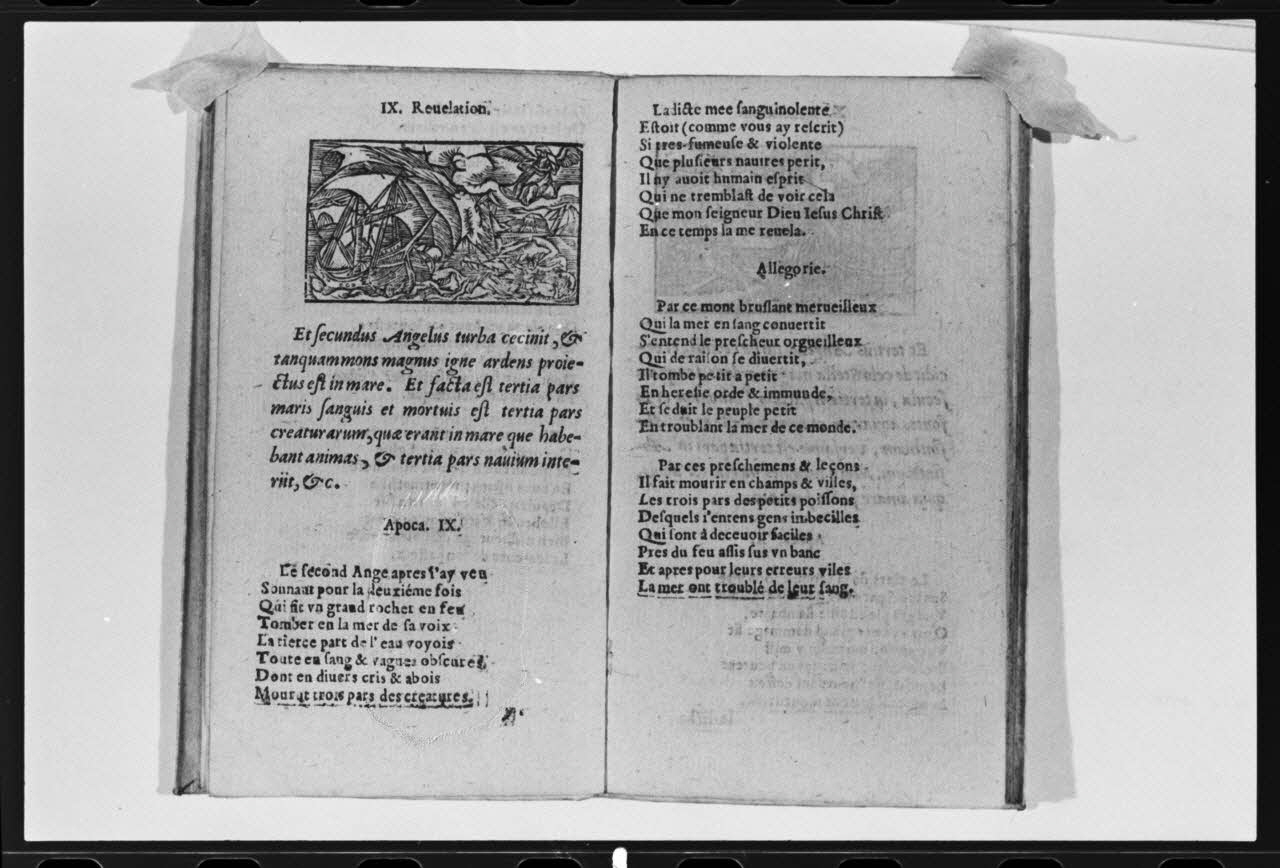 IX. Reuelation.
Et secundus Angelus turba cecinit, &
tanquammons magnus igne ardens proie-
ctus est in mare. Et facta est tertia pars
maris sanguis et mortuis est tertia pars
creaturarum, quæ erant in mare que habe-
bant animas, & tertia pars nauium inte-
riit, &c.
Apoca. IX.
Le second Ange apres i'ay veu
Sonnant pour la deuxiéme fois
Qui fit vn grand rocher en feu
Tomber en la mer de sa voix
La tierce part de l'eau voyois
Toute en sang & vagues obscures,
Dont en diuers cris & abois
Mourut trois pars des creatures.
La dicte mee sanguinolente
Estoit (comme vous ay rescrit)
Si tres-fumeuse & violente
Que plusieurs nauires perit,
Il ny auoit humain esprit
Qui ne tremblast de voir cela
Que mon seigneur Dieu Iesus Christ
En ce temps la me reuela.
Allegorie.
Par ce mont bruslant merueilleux
Qui la mer en sang conuertit
S'entend le prescheur orgueilleux
Qui de raison se diuertit,
Il tombe petit a petit
En heresie orde & immunde,
Et seduit le peuple petit
En troublant la mer de ce monde.
Par ces preschemens & leçons
Il fait mourir en champs & villes,
Les trois pars des petits poissons
Desquels i'entens gens imbecilles
Qui sont à deceuoir faciles
Pres du feu assis sus vn banc
Et apres pour leurs erreurs viles
La mer ont troublé de leur sang.